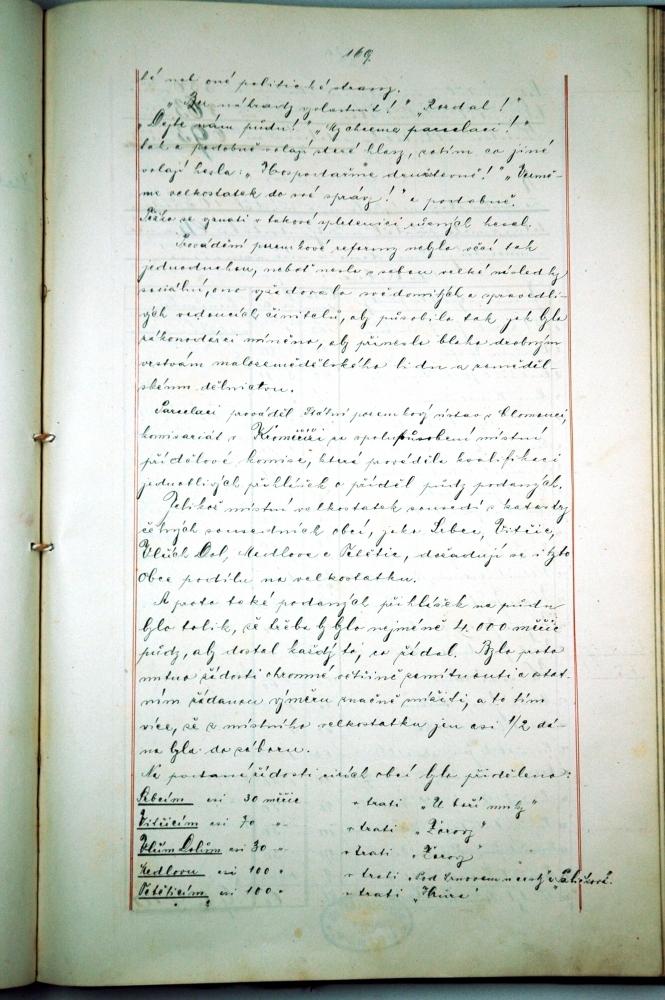 169.
té neb oné politické strany.
„Bez náhrady vyvlastnit!" „Rozdal!"
„Dejte nám půdu!" „My chceme parcelaci!"
tak a podobně volají které hlasy, zatím co jiné
volají hesla: „Hospodařme družstevně!" „Vezmě-
me velkostatek do své správy!" a podobně.
Těžko se vyznati v takové spletenici různých hesel.
Provádění pozemkové reformy nebylo věcí tak
jednoduchou, neboť nesla s sebou velké následky
sociální, ono vyžadovalo svědomitých a spravedli-
vých vedoucích činitelů, aby působila tak jak bylo
zákonodárci míněno, aby přinesla blaho drobným
vrstvám malozemědělského lidu a zeměděl-
skému dělnictvu.
Parcelaci prováděl Státní pozemkový ústav v Olomouci,
komisariát v Kroměříži za spolupůsobení místní
přídělové komise, která prováděla kvalifikaci
jednotlivých přihlášek o příděl půdy podaných.
Jelikož místní velkostatek sousedí s katastry
četných sousedních obcí, jako Srbce, Vitčic,
Vlčích Dol, Medlova a Pětětic, dožadují se i tyto
obce podílu na velkostatku.
A proto také podaných přihlášek na půdu
bylo tolik, že třeba by bylo nejméně 4.000 měřic
půdy, aby dostal každý to, co žádal. Bylo proto
nutno žádosti ohromné většině zamítnouti a ostat-
ním žádanou výměru značně snížiti, a to tím
více, že z místního velkostatku jen asi 1/2 dá-
na byla do záboru.
Na podané žádosti cizích obcí bylo přiděleno:
Srbcím asi 30 měřic v trati „U boží muky"
Vitčicím asi 70 „ v trati „Žároví"
Vlčím Dolům asi 30 „ v trati „Žároví"
Medlovu asi 100 „ v trati „Pod
Pětěticím asi 100 „ v trati „Hůra"